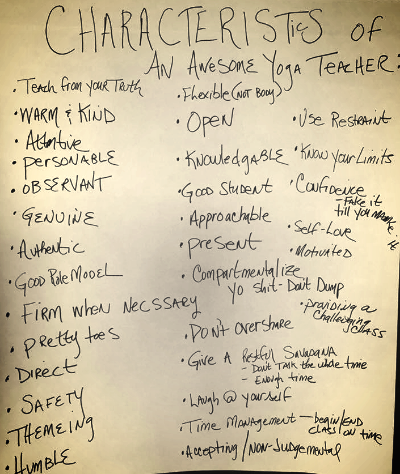 CHARACTERISTICS OF
AN AWESOME YOGA TEACHER:
• Teach from your Truth
• WARM & KIND
• Attentive
• PERSONABLE
• OBSERVANT
• GENUINE
• Authentic
• Good Role Model
• FIRM WHEN NECSSARY
• pretty toes
• DIRECT
• SAFETY
• THEMEING
• HUMBLE
• Flexible (NOT BODY)
• OPEN
• KNOWLEDGABLE
• GOOD STUDENT
• Approachable
• present
• Compartmentalize
yo shit - Don't Dump
• DON'T overshare
• GIVE A Restful SAVASANA
- Don't TALK the whole time
- Enough time
• LAUGH @ yourself
• TIME MANAGEMENT - begin/END
class on time
• Accepting / NON-Judgemental
• USE RESTRAINT
• KNOW your LIMITS
• Confidence
- FAKE it
till you MAKE
it
• SELF-LOVE
• MOTIVATED
• providing a
challenging
CLASS